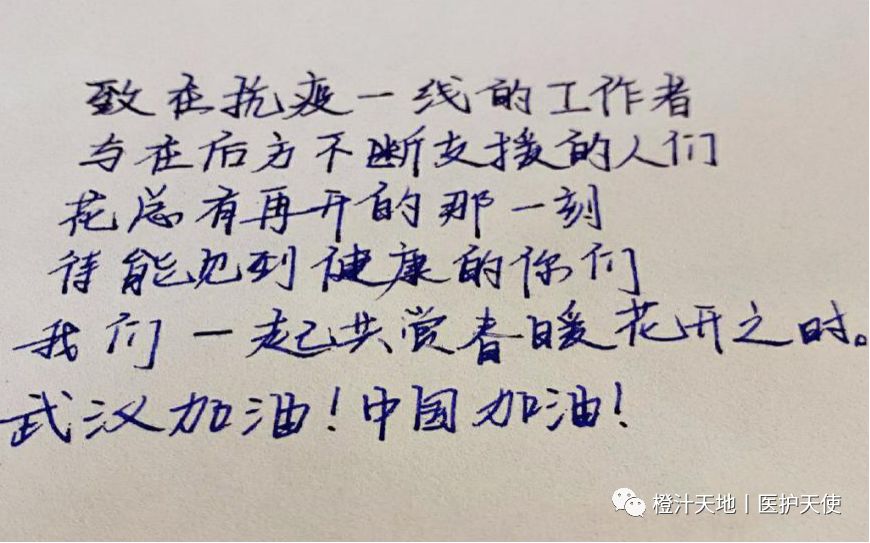 致在抗疫一线的工作者
与在后方不断支援的人们
花总有再开的那一刻
待能见到健康的你们
我们一起共赏春暖花开之时。
武汉加油！中国加油！
橙汁天地丨医护天使